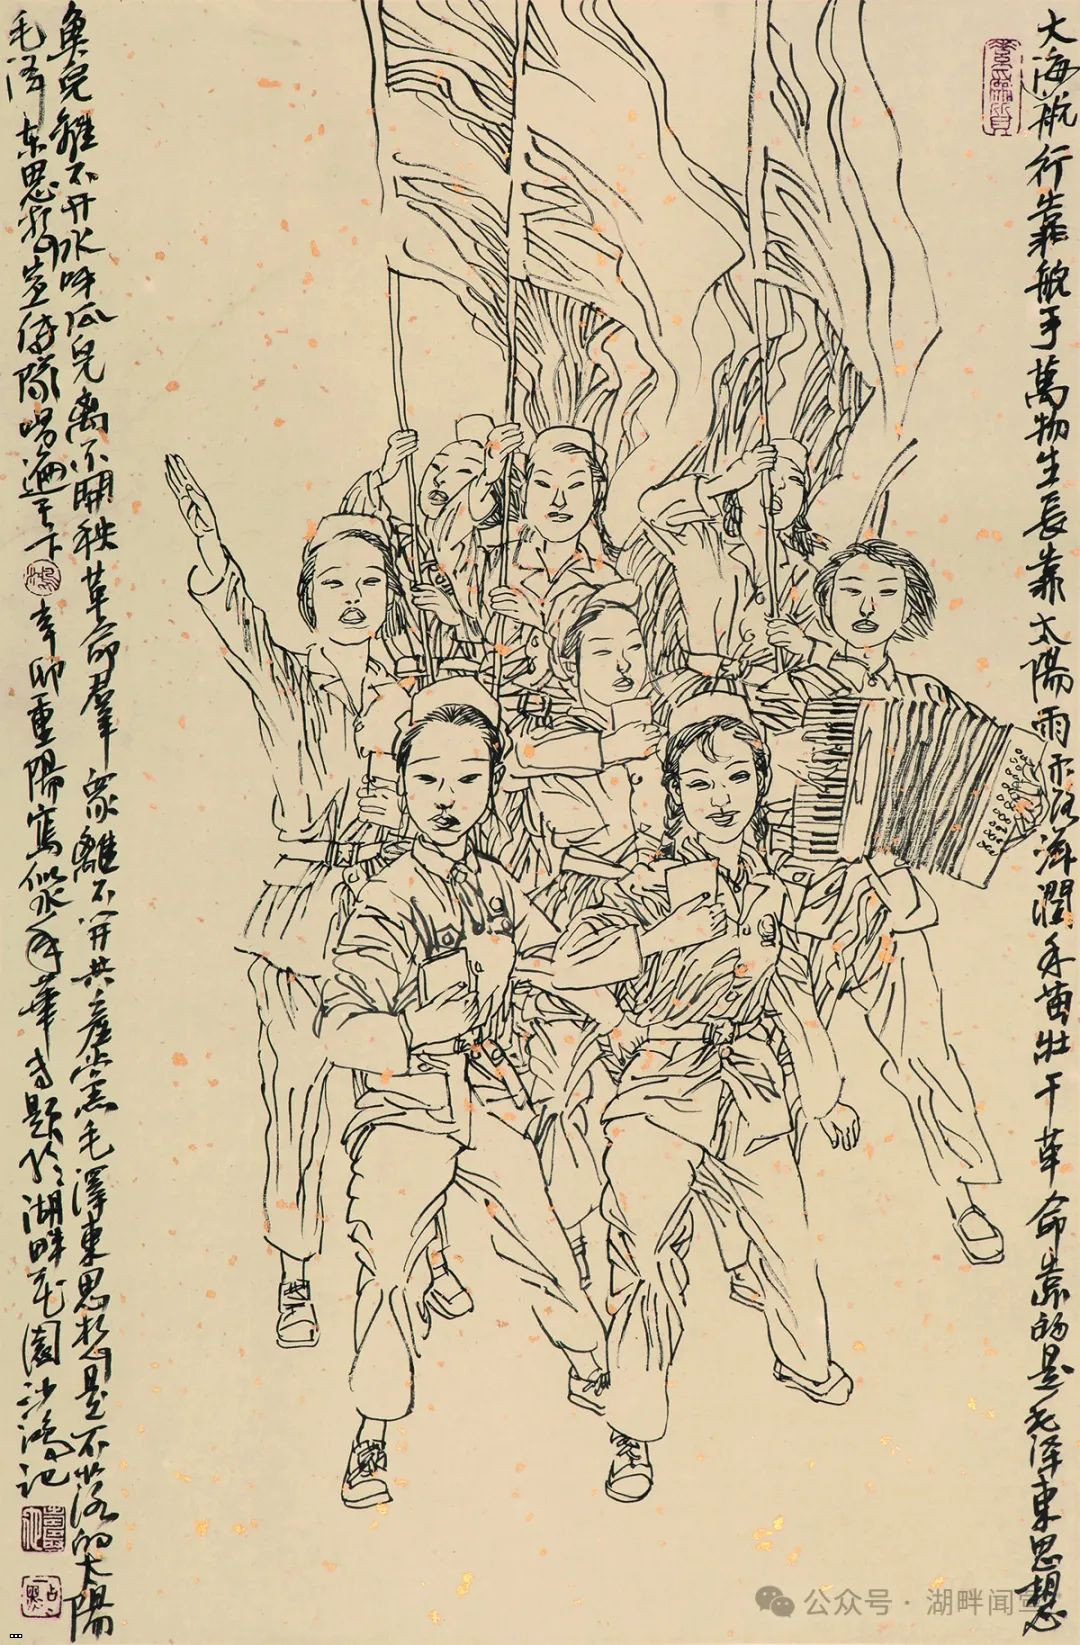 大海航行靠舵手萬物生長靠太陽雨露滋潤禾苗壯干革命靠的是毛泽東思想
魚兒離不开水呀瓜兒离不開秧革命羣眾離不开共產黨毛澤東思想是不落的太陽
毛泽东思想宣傳隊唱遍天下
辛卯重陽寫似水年華 題於湖畔花園沙鴻记
公众号·湖畔闻